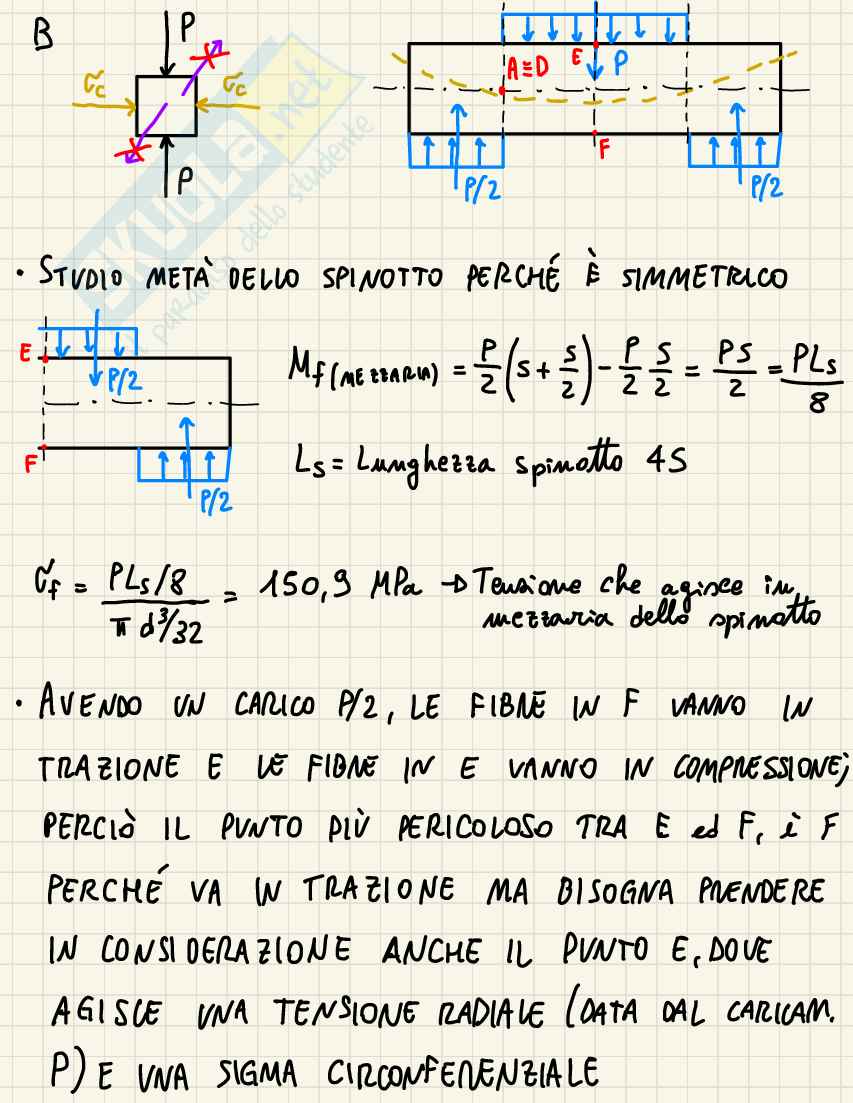 B
P
σc
σc
P
A≡D
E
P
F
P/2
P/2
SKUOLA.net
il paradiso dello studente
• STUDIO METÀ DELLO SPINOTTO PERCHÉ È SIMMETRICO
E
P/2
F
P/2
Mf(MEZZARIA) = P/2 (S + S/2) - P/2 S/2 = PS/2 = PLs/8
Ls = Lunghezza spinotto 4S
σf = (PLs/8)/(π d³/32) = 150,9 MPa → Tensione che agisce in
mezzaria dello spinotto
• AVENDO UN CARICO P/2, LE FIBRE IN F VANNO IN
TRAZIONE E LE FIBRE IN E VANNO IN COMPRESSIONE;
PERCIÒ IL PUNTO PIÙ PERICOLOSO TRA E ed F, è F
PERCHÉ VA IN TRAZIONE MA BISOGNA PRENDERE
IN CONSIDERAZIONE ANCHE IL PUNTO E, DOVE
AGISCE UNA TENSIONE RADIALE (DATA DAL CARICAM.
P) E UNA SIGMA CIRCONFERENZIALE